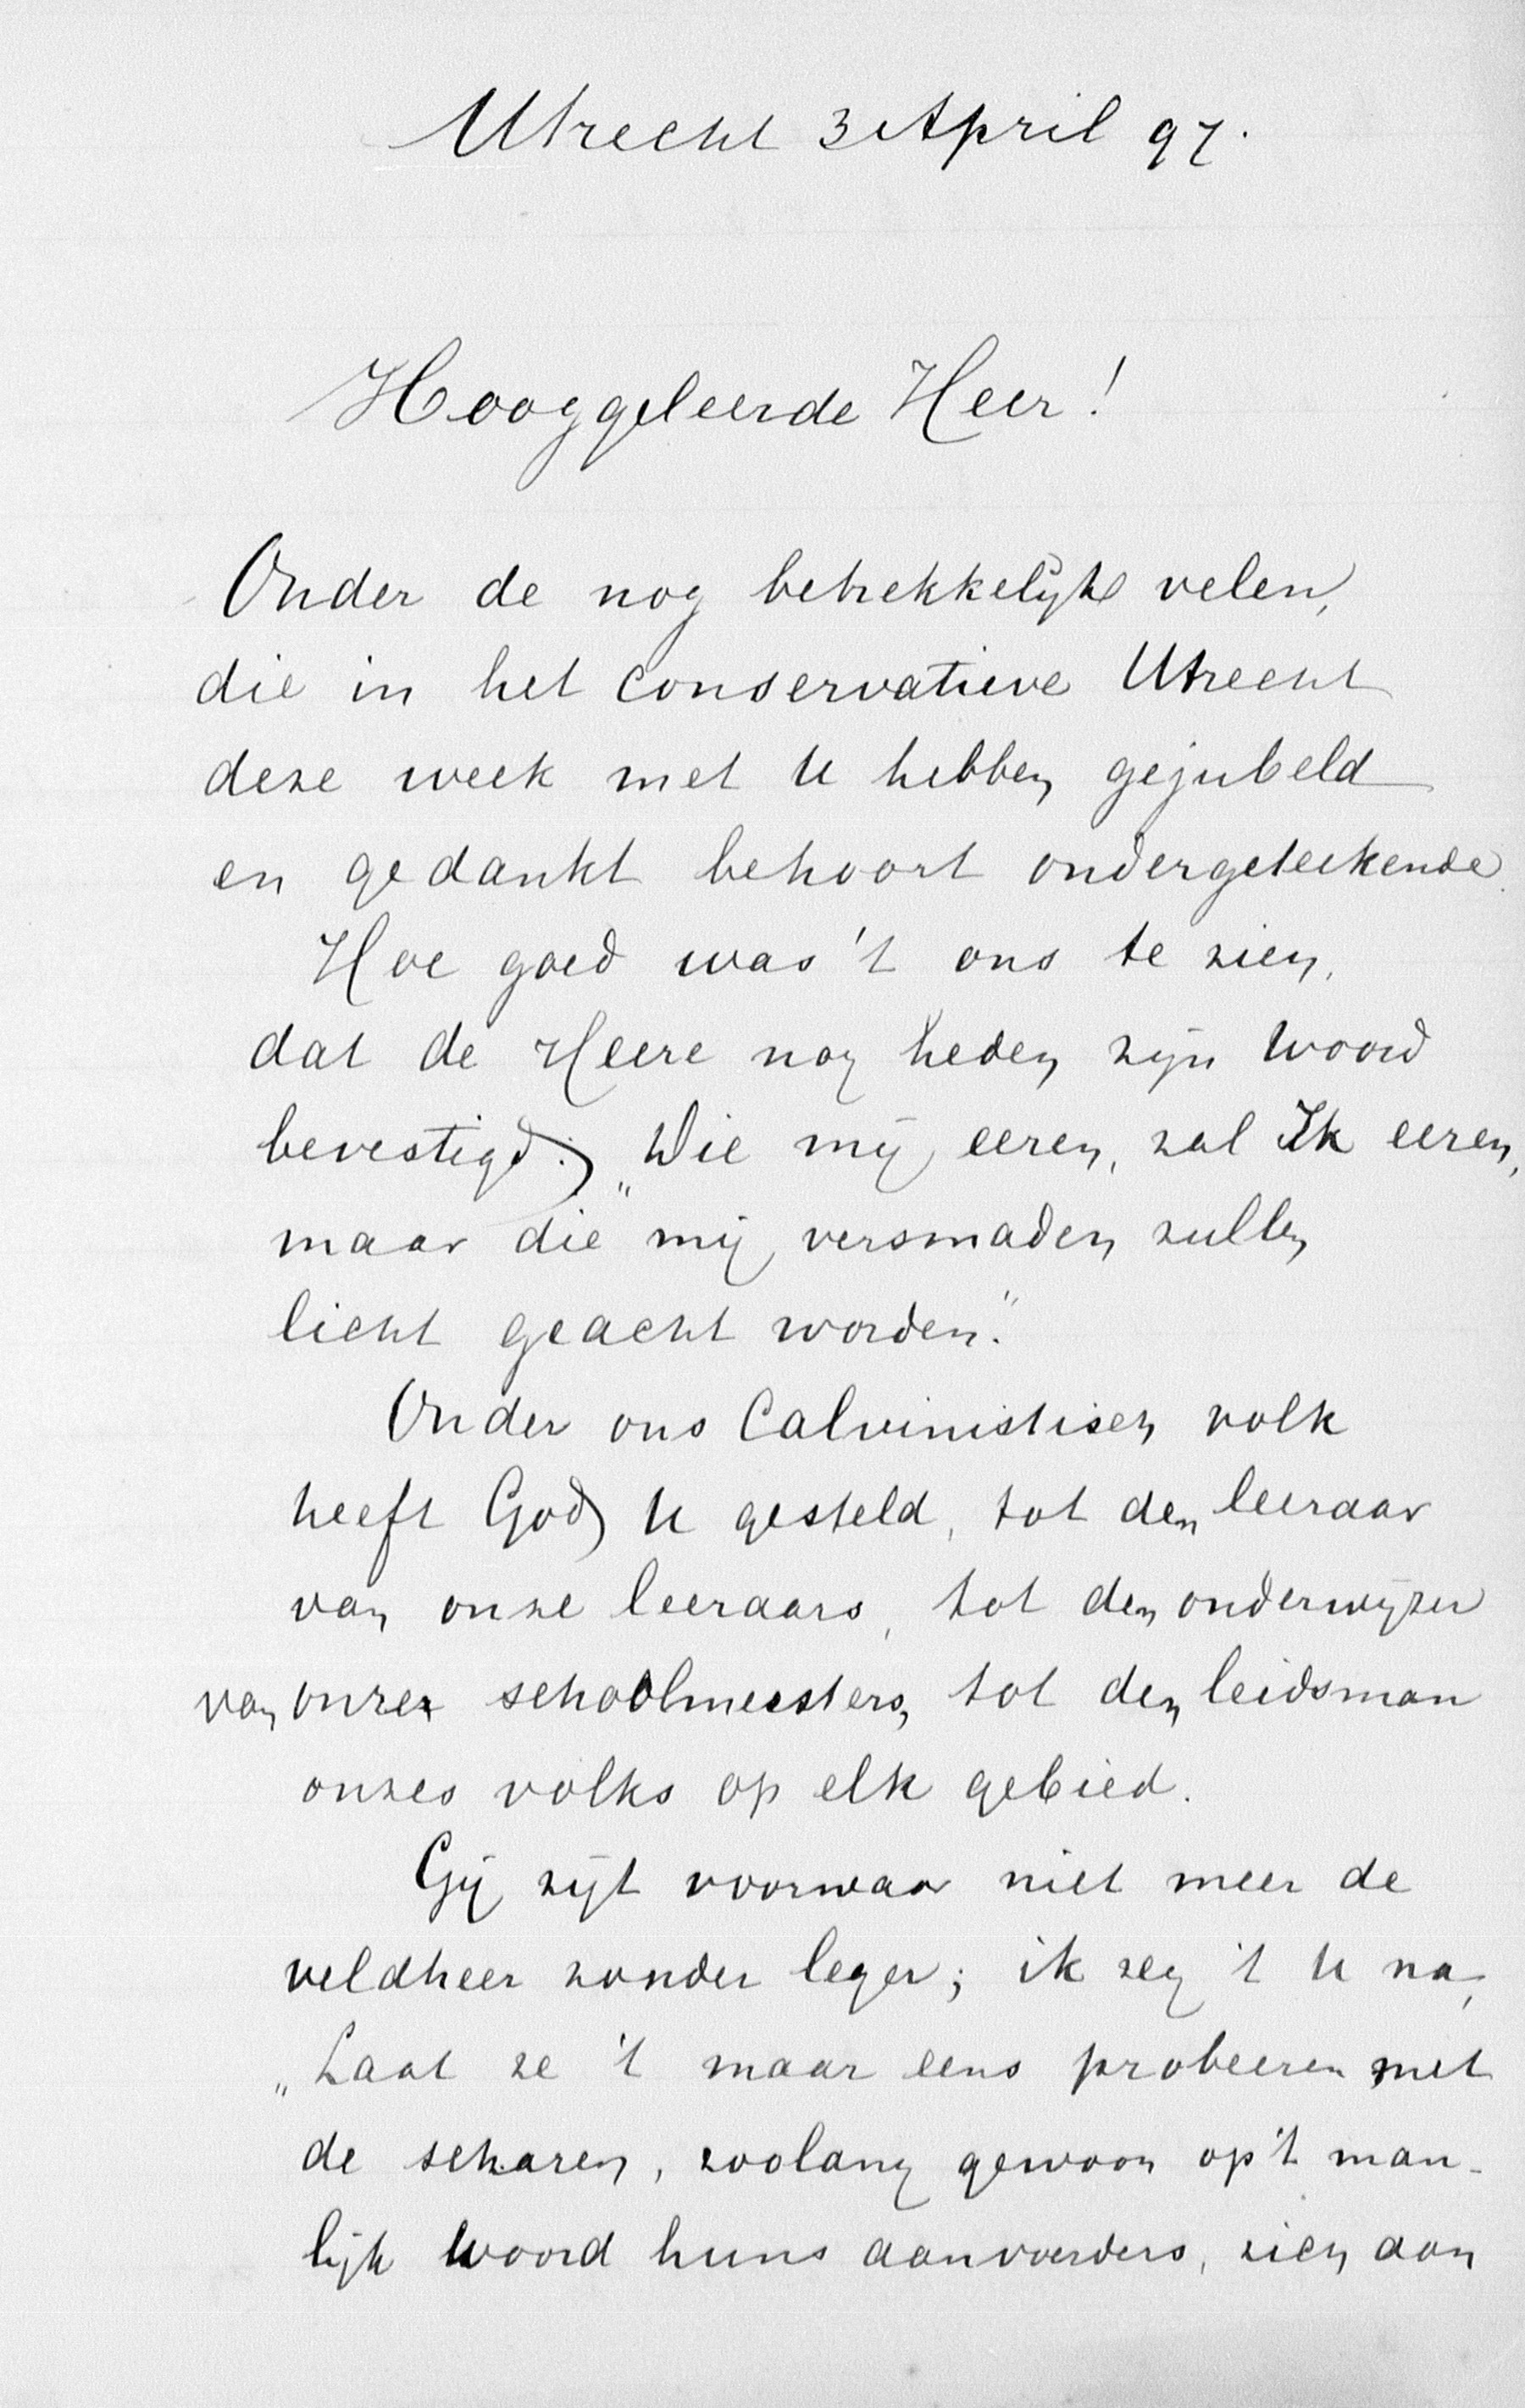 Utrecht 3 April 97.
Hooggeleerde Heer!
Onder de nog betrekkelijk velen,
die in het conservatieve Utrecht
deze week met U hebben gejubeld
en gedankt behoort ondergeteekende.
Hoe goed was 't ons te zien,
dat de Heere nog heden zijn woord
bevestigd: „Die mij eeren, zal Ik eeren,
maar die mij versmaden zullen
licht geacht worden."
Onder ons Calvinistisch volk
heeft God U gesteld, tot den leeraar
van onze leeraars, tot den onderwijzer
van onze schoolmeesters, tot den leidsman
onzes volks op elk gebied.
Gij zijt voorwaar niet meer de
veldheer zonder leger; ik zeg 't U na,
„Laat ze 't maar eens probeeren met
de scharen, zoolang gewoon op 't man-
lijk woord huns aanvoerders, zich aan